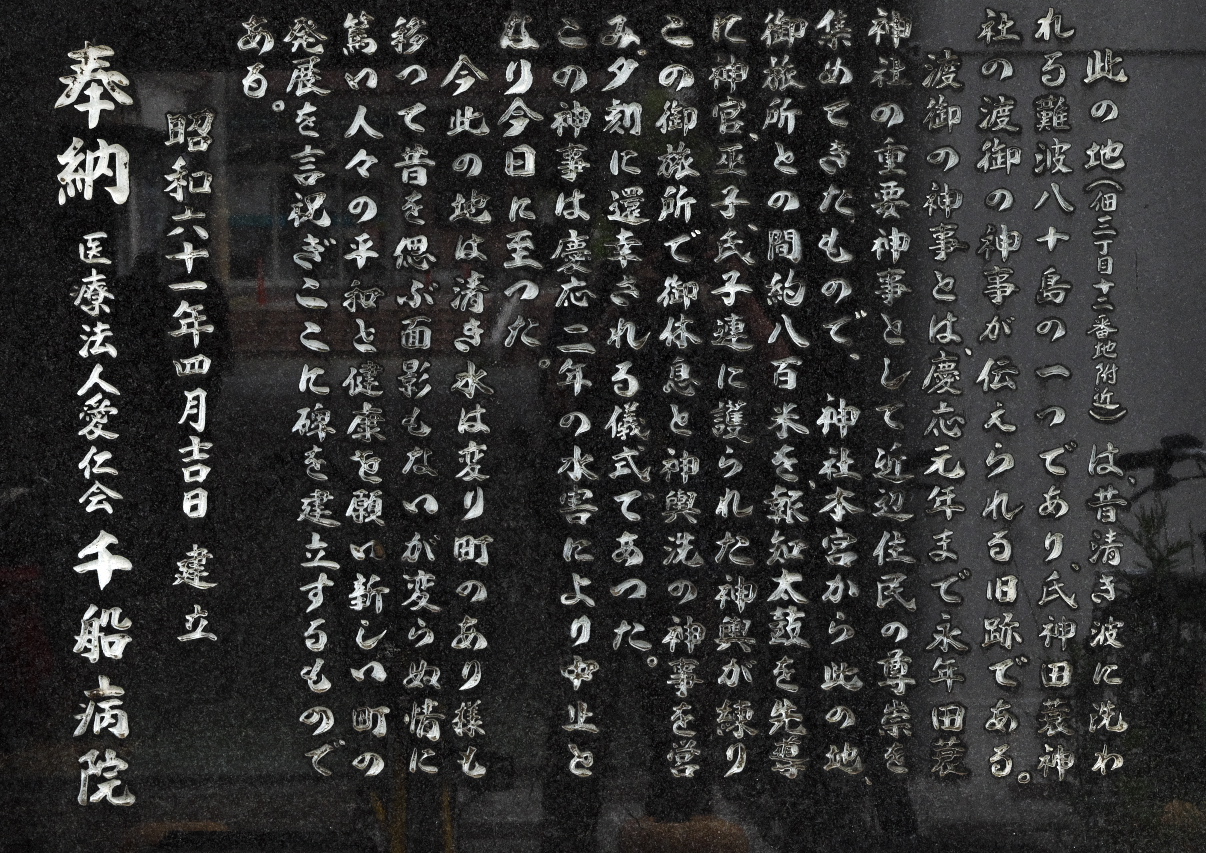 此の地(佃二丁目十二番地附近)は、昔清き波に洗わ
れる難波八十島の一つであり、氏神田蓑神
社の渡御の神事が伝えられる旧跡である。
渡御の神事とは、慶応元年まで永年田蓑
神社の重要神事として近辺住民の尊崇を
集めてきたもので、神社本宮から此の地、
御旅所との間約八百米を、報知太鼓を先導
に神官、巫子、氏子連に護られた神輿が練り
この御旅所で御休息と神輿洗の神事を営
み、夕刻に還幸される儀式であつた。
この神事は慶応二年の水害により中止と
なり今日に至つた。
今此の地は清き水は変り町のあり様も
移つて昔を偲ぶ面影もないが変らぬ情に
篤い人々の平和と健康を願い新しい町の
発展を言祝ぎここに碑を建立するもので
ある。
昭和六十一年四月吉日 建立
奉納 医療法人愛仁会 千船病院